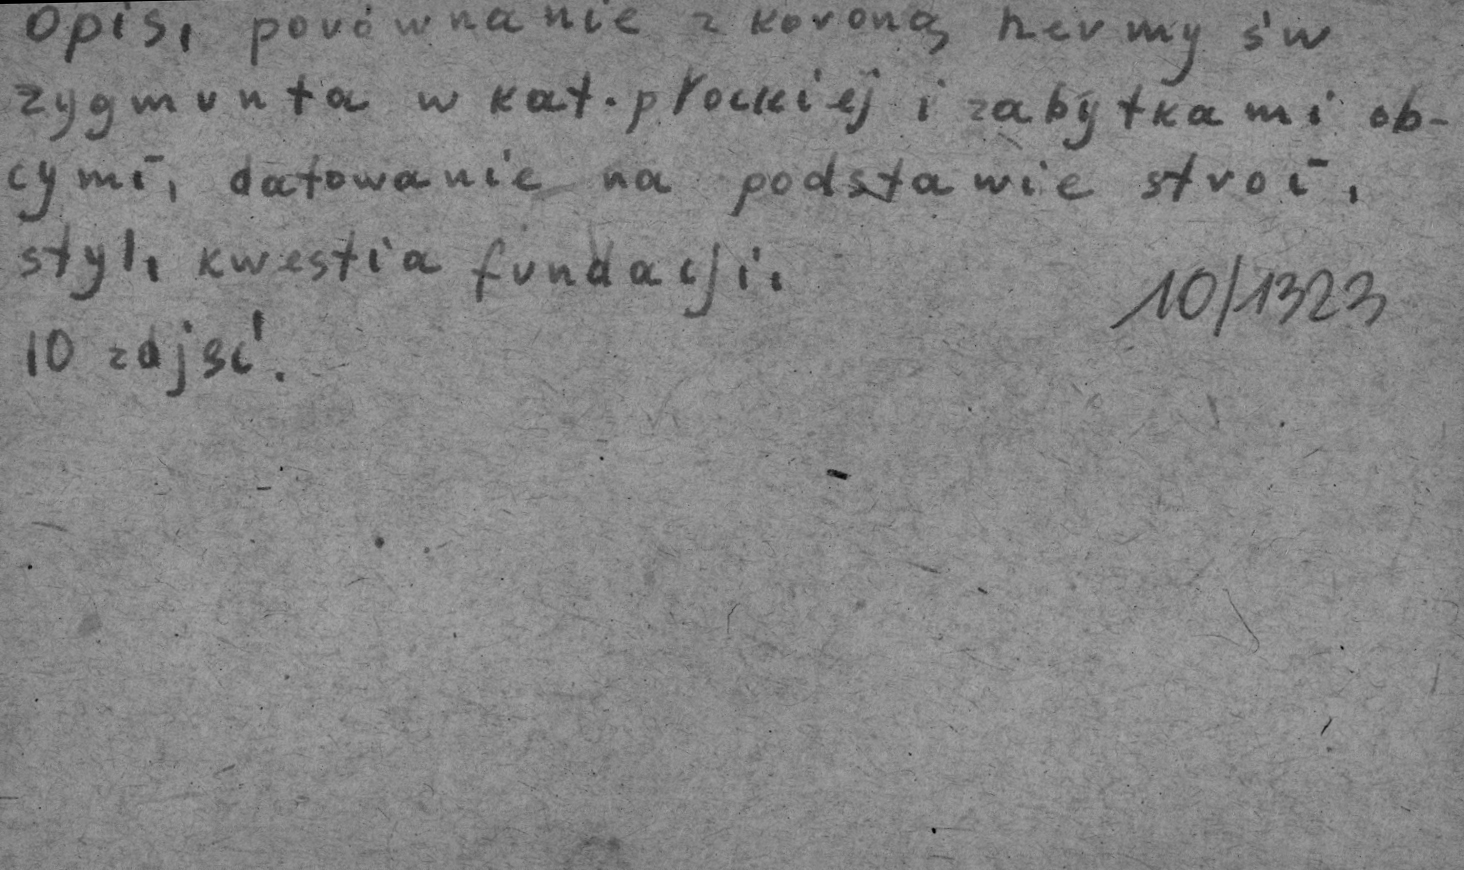 Opis, porównanie z koroną hermy św
zygmunta w kat. płockiej i zabytkami ob-
cymi, datowanie na podstawie stroi,
styl, kwestia fundacji,
10/1323
10 zdjęć.